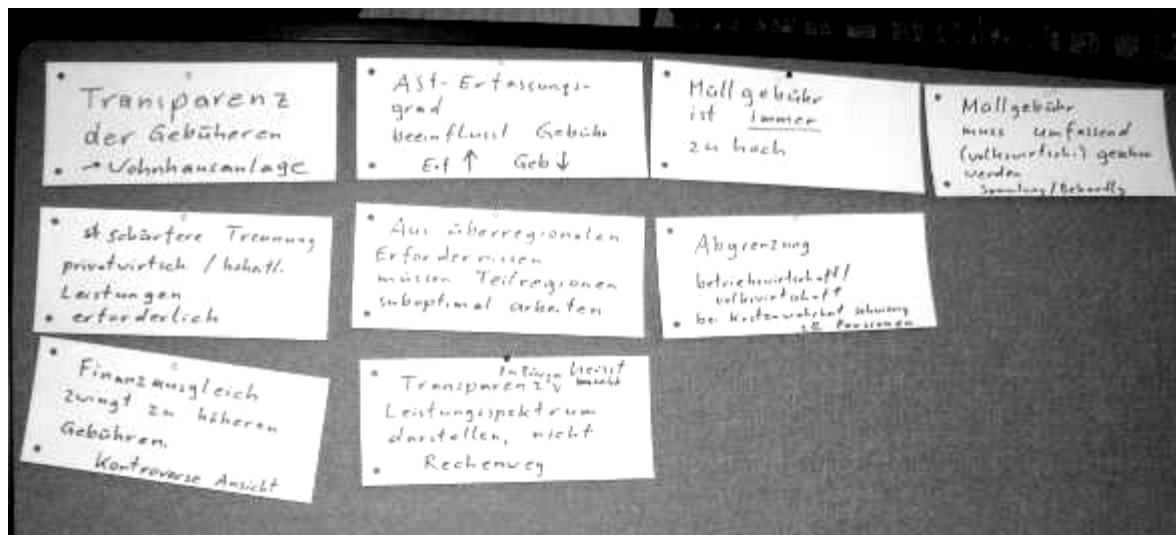 Transparenz
der Gebüheren
→ Wohnhausanlage
ASf-Erfassungs-
grad
beeinflusst Gebühr
Erf ↑ Geb ↓
Müllgebühr
ist immer
zu hoch
Müllgebühr
muss umfassend
(volkswirtsch.) gesehen
werden
Sammlung/Behandlg
schärfere Trennung
privatwirtsch / hoheitl.
Leistungen
erforderlich
Aus überregionalen
Erfordernissen
müssen Teilregionen
suboptimal arbeiten
Abgrenzung
betriebswirtschaft/
volkswirtschaft
bei Kostenwahrheit schwierig
zB Pensionen
Finanzausgleich
zwingt zu höheren
Gebühren.
Kontroverse Ansicht
heisst
Transparenz
Leistungsspektrum
darstellen, nicht
Rechenweg